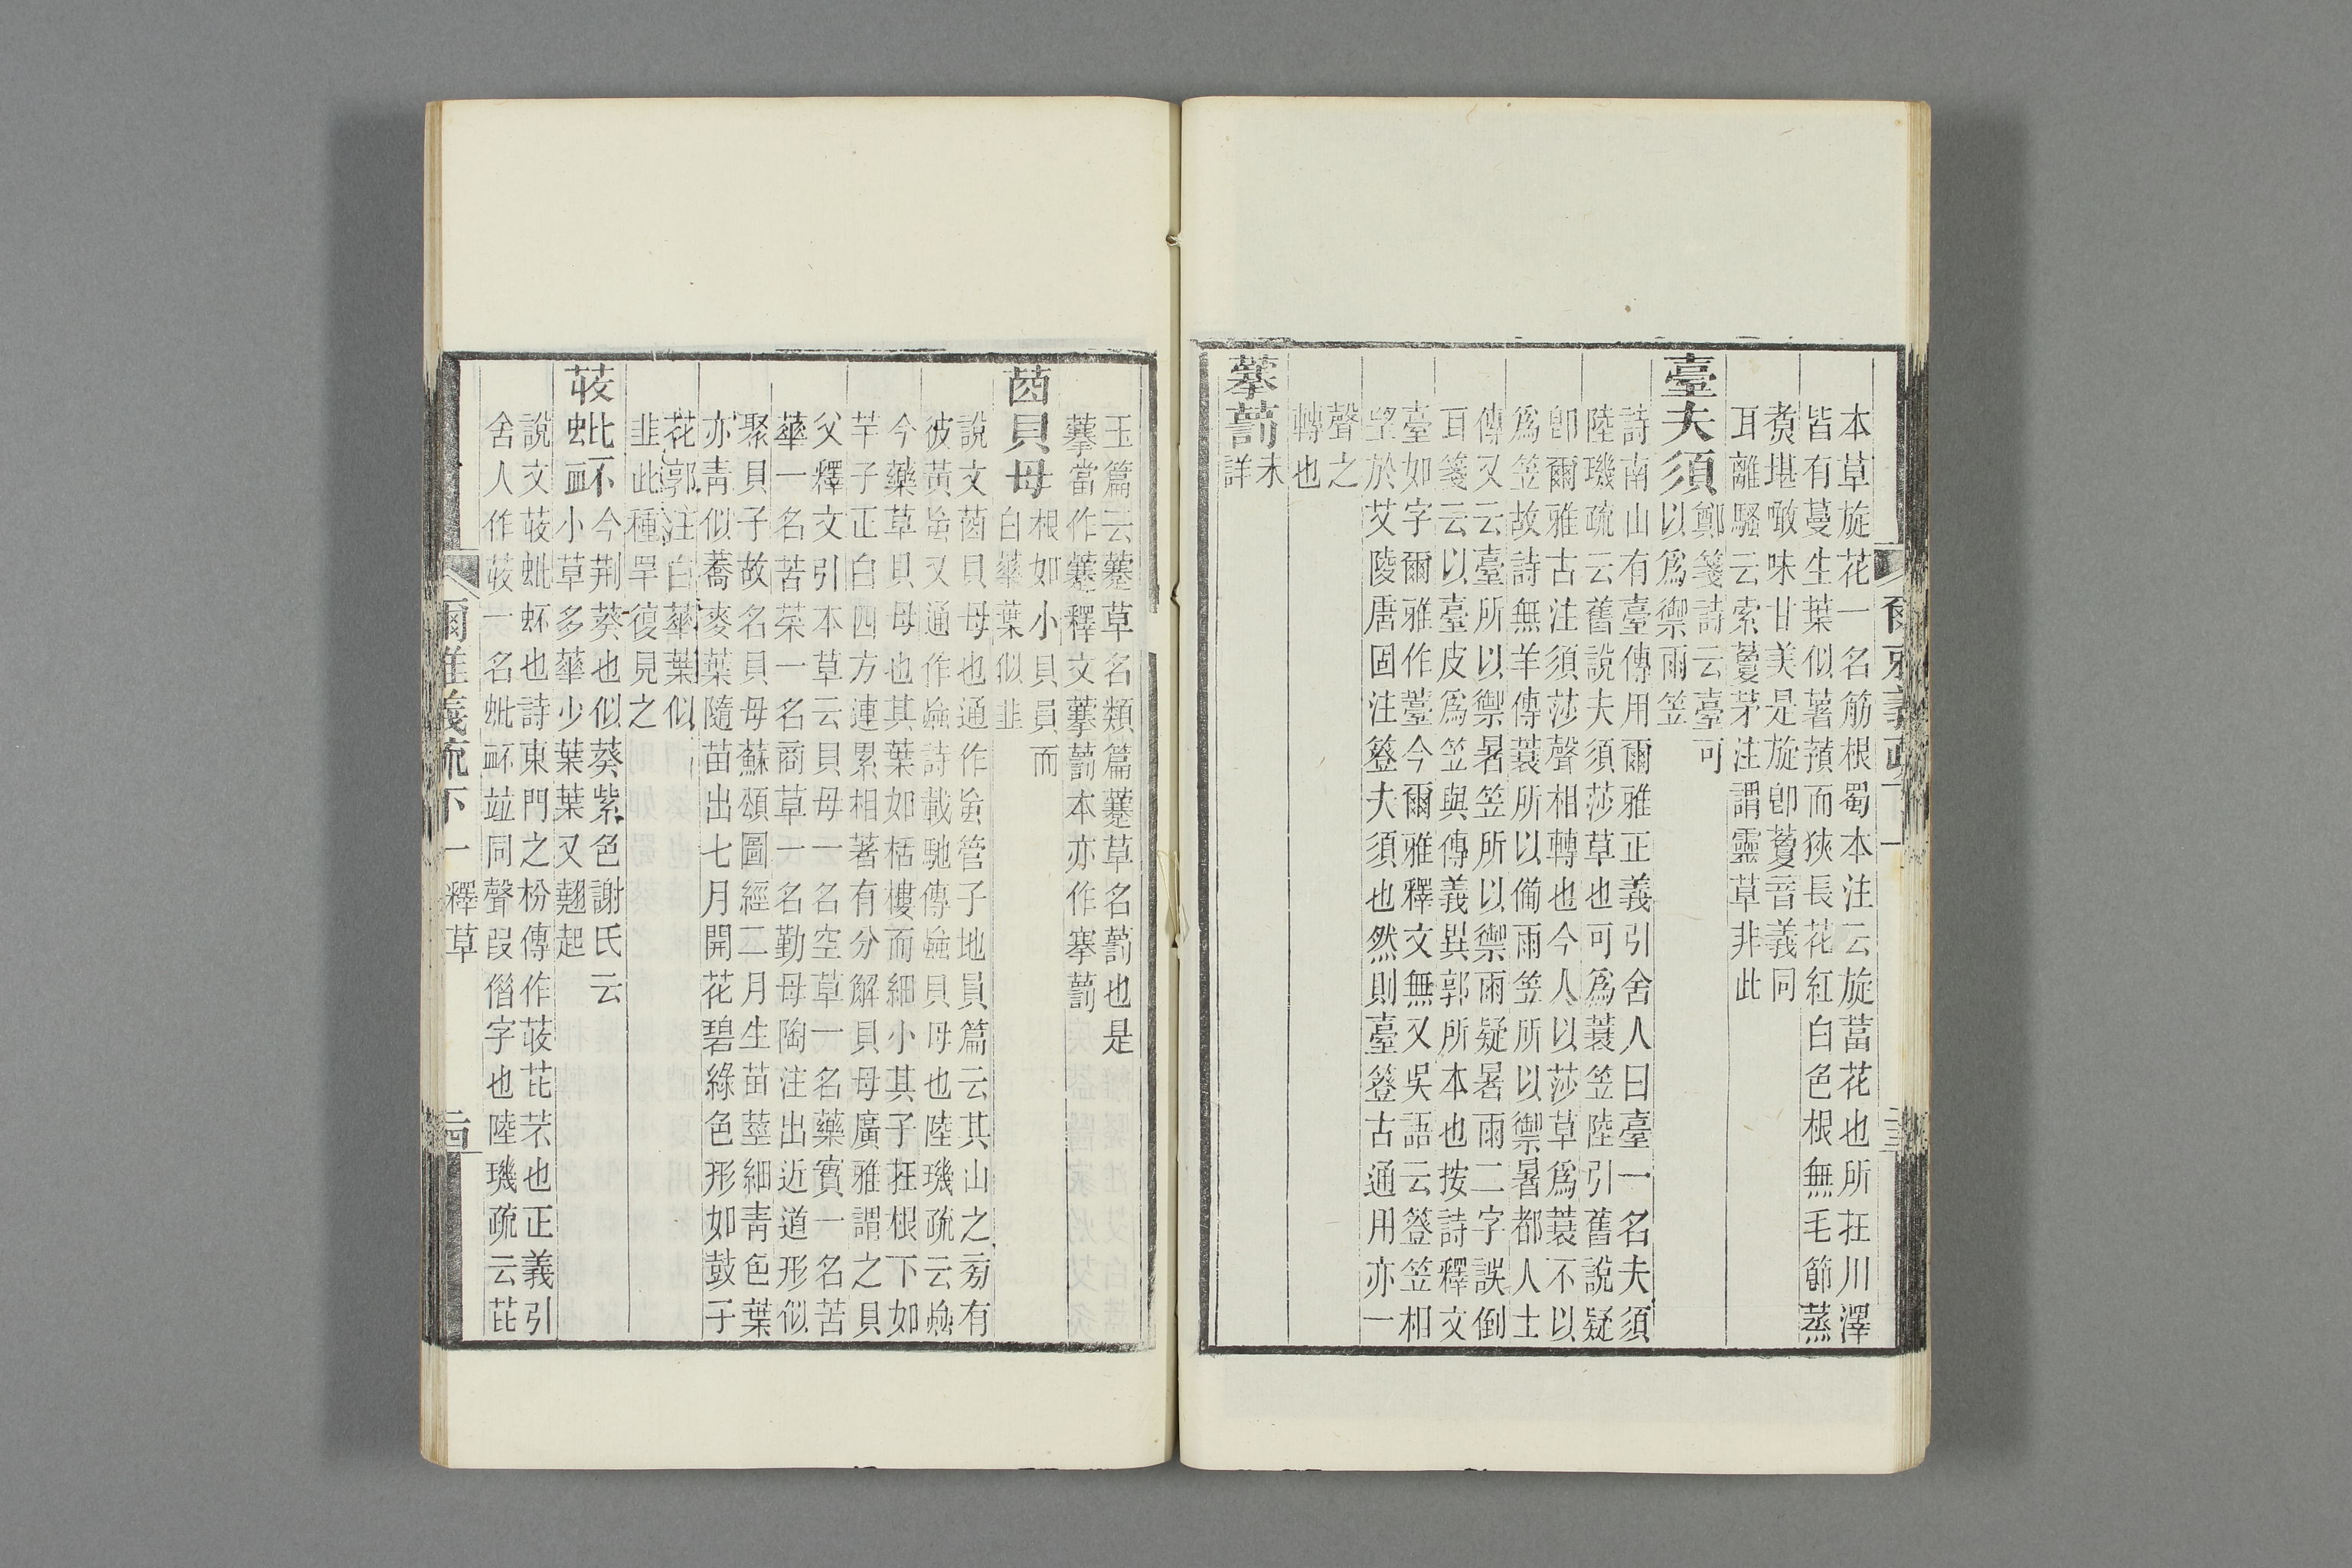 本草旋花一名筋根蜀本注云旋葍花也所在川澤
皆有蔓生葉似薯蕷而狹長花紅白色根無毛節蒸
煑堪噉味甘美是旋卽藑音義同
耳離騷云索藑茅注謂靈草非此
臺夫須
鄭箋詩云臺可
以爲禦雨笠
詩南山有臺傳用爾雅正義引舍人曰臺一名夫須
陸璣疏云舊說夫須莎草也可爲蓑笠陸引舊說疑
卽爾雅古注須莎聲相轉也今人以莎草爲蓑不以
爲笠故詩無羊傳蓑所以備雨笠所以禦暑都人士
傳又云臺所以禦暑笠所以禦雨疑暑雨二字誤倒
耳箋云以臺皮爲笠與傳義異郭所本也按詩釋文
臺如字爾雅作薹今爾雅釋文無又吳語云簦笠相
望於艾陵唐固注簦夫須也然則臺簦古通用亦一
聲之
轉也
藆藅
未
詳
玉篇云藆草名類篇藆草名藅也是
藆當作藆釋文藆藅本亦作搴藅
莔貝母
根如小貝員而
白華葉似韭
說文莔貝母也通作䖟管子地員篇云其山之旁有
彼黃䖟又通作蝱詩載馳傳蝱貝母也陸璣疏云蝱
今藥草貝母也其葉如栝樓而細小其子在根下如
芋子正白四方連累相著有分解貝母廣雅謂之貝
父釋文引本草云貝母一名空草一名藥實一名苦
華一名苦菜一名商草一名勤母陶注出近道形似
聚貝子故名貝母蘇頌圖經二月生苗莖細靑色葉
亦靑似蕎麥葉隨苗出七月開花碧綠色形如鼓子
花郭注白華葉似
韭此種罕復見之
荍蚍衃
今荆葵也似葵紫色謝氏云
小草多華少葉葉又翹起
說文荍蚍虾也詩東門之枌傳作荍芘芣也正義引
舍人作荍一名蚍衃竝同聲叚偺字也陸璣疏云芘
爾雅義疏下一 釋草